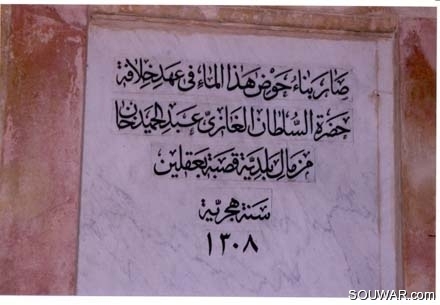 صار بناء حوض هذا الماء في عهد خلافة
حضرة السلطان الغازي عبد الحميد خان
من مال بلدية قصبة بعقلين
سنة هجرية
١٣٠٨
SOUWAR.com